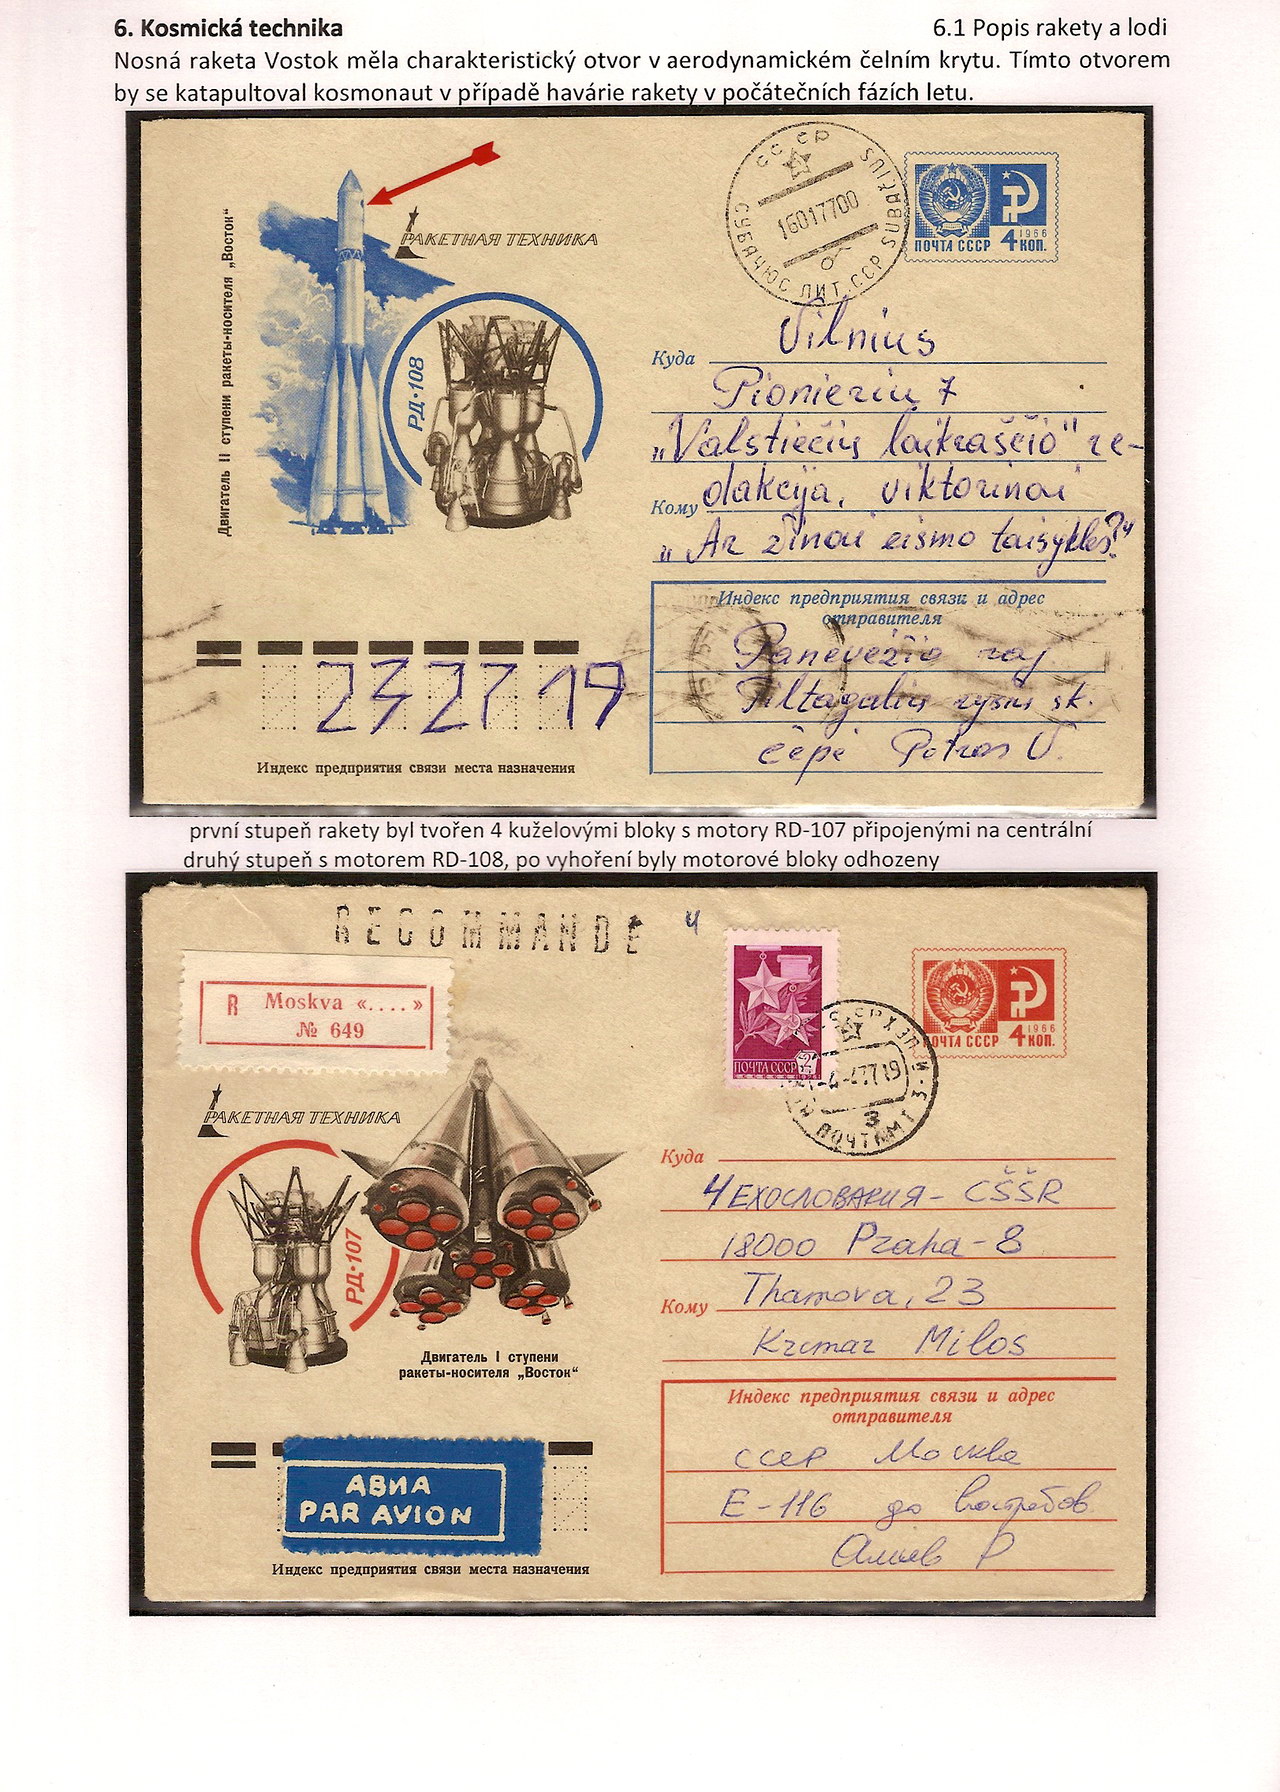 6. Kosmická technika 6.1 Popis rakety a lodi
Nosná raketa Vostok měla charakteristický otvor v aerodynamickém čelním krytu. Tímto otvorem
by se katapultoval kosmonaut v případě havárie rakety v počátečních fázích letu.
Двигатель II ступени ракеты-носителя „Восток“
РАКЕТНАЯ ТЕХНИКА
РД-108
СССР
16017700
СУБАЧЮС ЛИТ.ССР SUBAČIUS
ПОЧТА СССР 4 КОП.
1966
Куда Vilnius
Pionierių 7
„Valstiečių laikraščio" re-
Кому dakcija, viktorinai
„Ar žinai eismo taisykles?"
Индекс предприятия связи и адрес
отправителя
Panevėžio raj.
Piltagalių ryšių sk.
Čepė Petras V.
232719
Индекс предприятия связи места назначения
první stupeň rakety byl tvořen 4 kuželovými bloky s motory RD-107 připojenými na centrální
druhý stupeň s motorem RD-108, po vyhoření byly motorové bloky odhozeny
RECOMMANDE 4
R Moskva «....»
№ 649
ПОЧТА СССР
ПОЧТА СССР 4 КОП.
1966
ПОЧТАМТ
3
РАКЕТНАЯ ТЕХНИКА
РД-107
Двигатель I ступени
ракеты-носителя „Восток“
Куда
Чехословакия - ČSSR
18000 Praha-8
Thamova, 23
Кому
Krcmar Milos
Индекс предприятия связи и адрес
отправителя
СССР Москва
Е-116 до востребов.
Алиев Р
АВИА
PAR AVION
Индекс предприятия связи места назначения